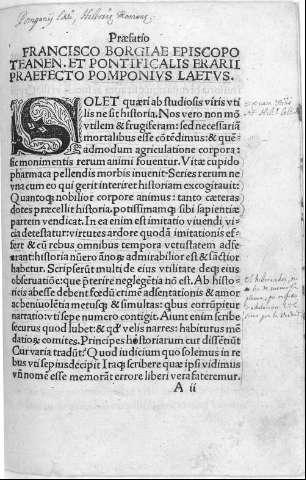 Pomponij Laeti, Historiae Romanae
Præfatio
FRANCISCO BORGIAE EPISCOPO
TEANEN. ET PONTIFICALIS ERARII
PRAEFECTO POMPONIVS LAETVS.
SOLET quæri ab studiosis viris vti
lis ne sit historia. Nos vero non mõ
vtilem & frugiferam: sed necessariã
mortalibus esse cõtẽdimus: & quẽ
admodum agriculatione corpora:
sic monimentis rerum animi fouentur. Vitæ cupido
pharmaca pellendis morbis inuenit. Series rerum ne
vna cum eo qui gerit interiret historiam excogitauit:
Quantoq; nobilior corpore animus: tanto cæteras
dotes præcellit historia. potissimamq; sibi sapientiæ
partem vendicat. In ea enim est imitatio viuendi, vi
cia detestatur: virtutes ardore quodã imitationis ef
fert & eũ rebus omnibus tempora vetustatem adfe
rant: historia nũero ãnoꝝ admirabilior est & sãctior
habetur. Scripserũt multi de eius vtilitate deq; eius
obseruatiõe: que pterire neglegẽtia nõ est. Ab histo
ricis abesse debent fœdũ crimẽ adsentationis & amor
ac beniuolẽtia metusq; & simultas: qbus corrũpitur
narratio: vti sepe numero contigit. Aiunt enim scribe
securus quod lubet: & qd velis narres: habiturus mẽ
datio℞ comites. Principes historiarum cur dissẽtiũt
Cur varia tradũt? Quod iudicium quo solemus in re
bus vti sepius decipit Itaq; scribere quæ ipsi vidimus
vñ nomẽ esse memorãt errore liberi vera fateremur.
A ii